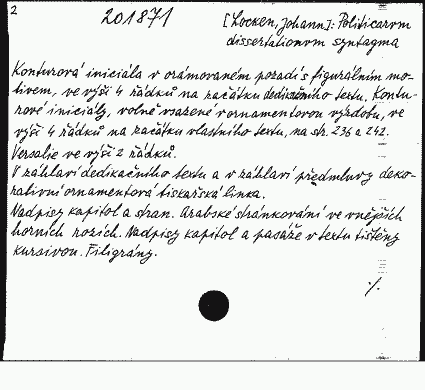 2
201871
[Locken, Johann]: Politicarvm
dissertationvm syntagma
Konturová iniciála v orámovaném pozadí s figurálním mo-
tivem, ve výši 4 řádků na začátku dedikačního textu. Kontu-
rové iniciály, volně vsazené v ornamentovou výzdobu, ve
výši 4 řádků na začátku vlastního textu, na str. 236 a 242.
Versalie ve výši 2 řádků.
V záhlaví dedikačního textu a v záhlaví předmluvy deko-
rativní ornamentová tiskařská linka.
Nadpisy kapitol a stran. Arabské stránkování ve vnějších
horních rozích. Nadpisy kapitol a pasáže v textu tištěny
kursivou. Filigrány.
./.